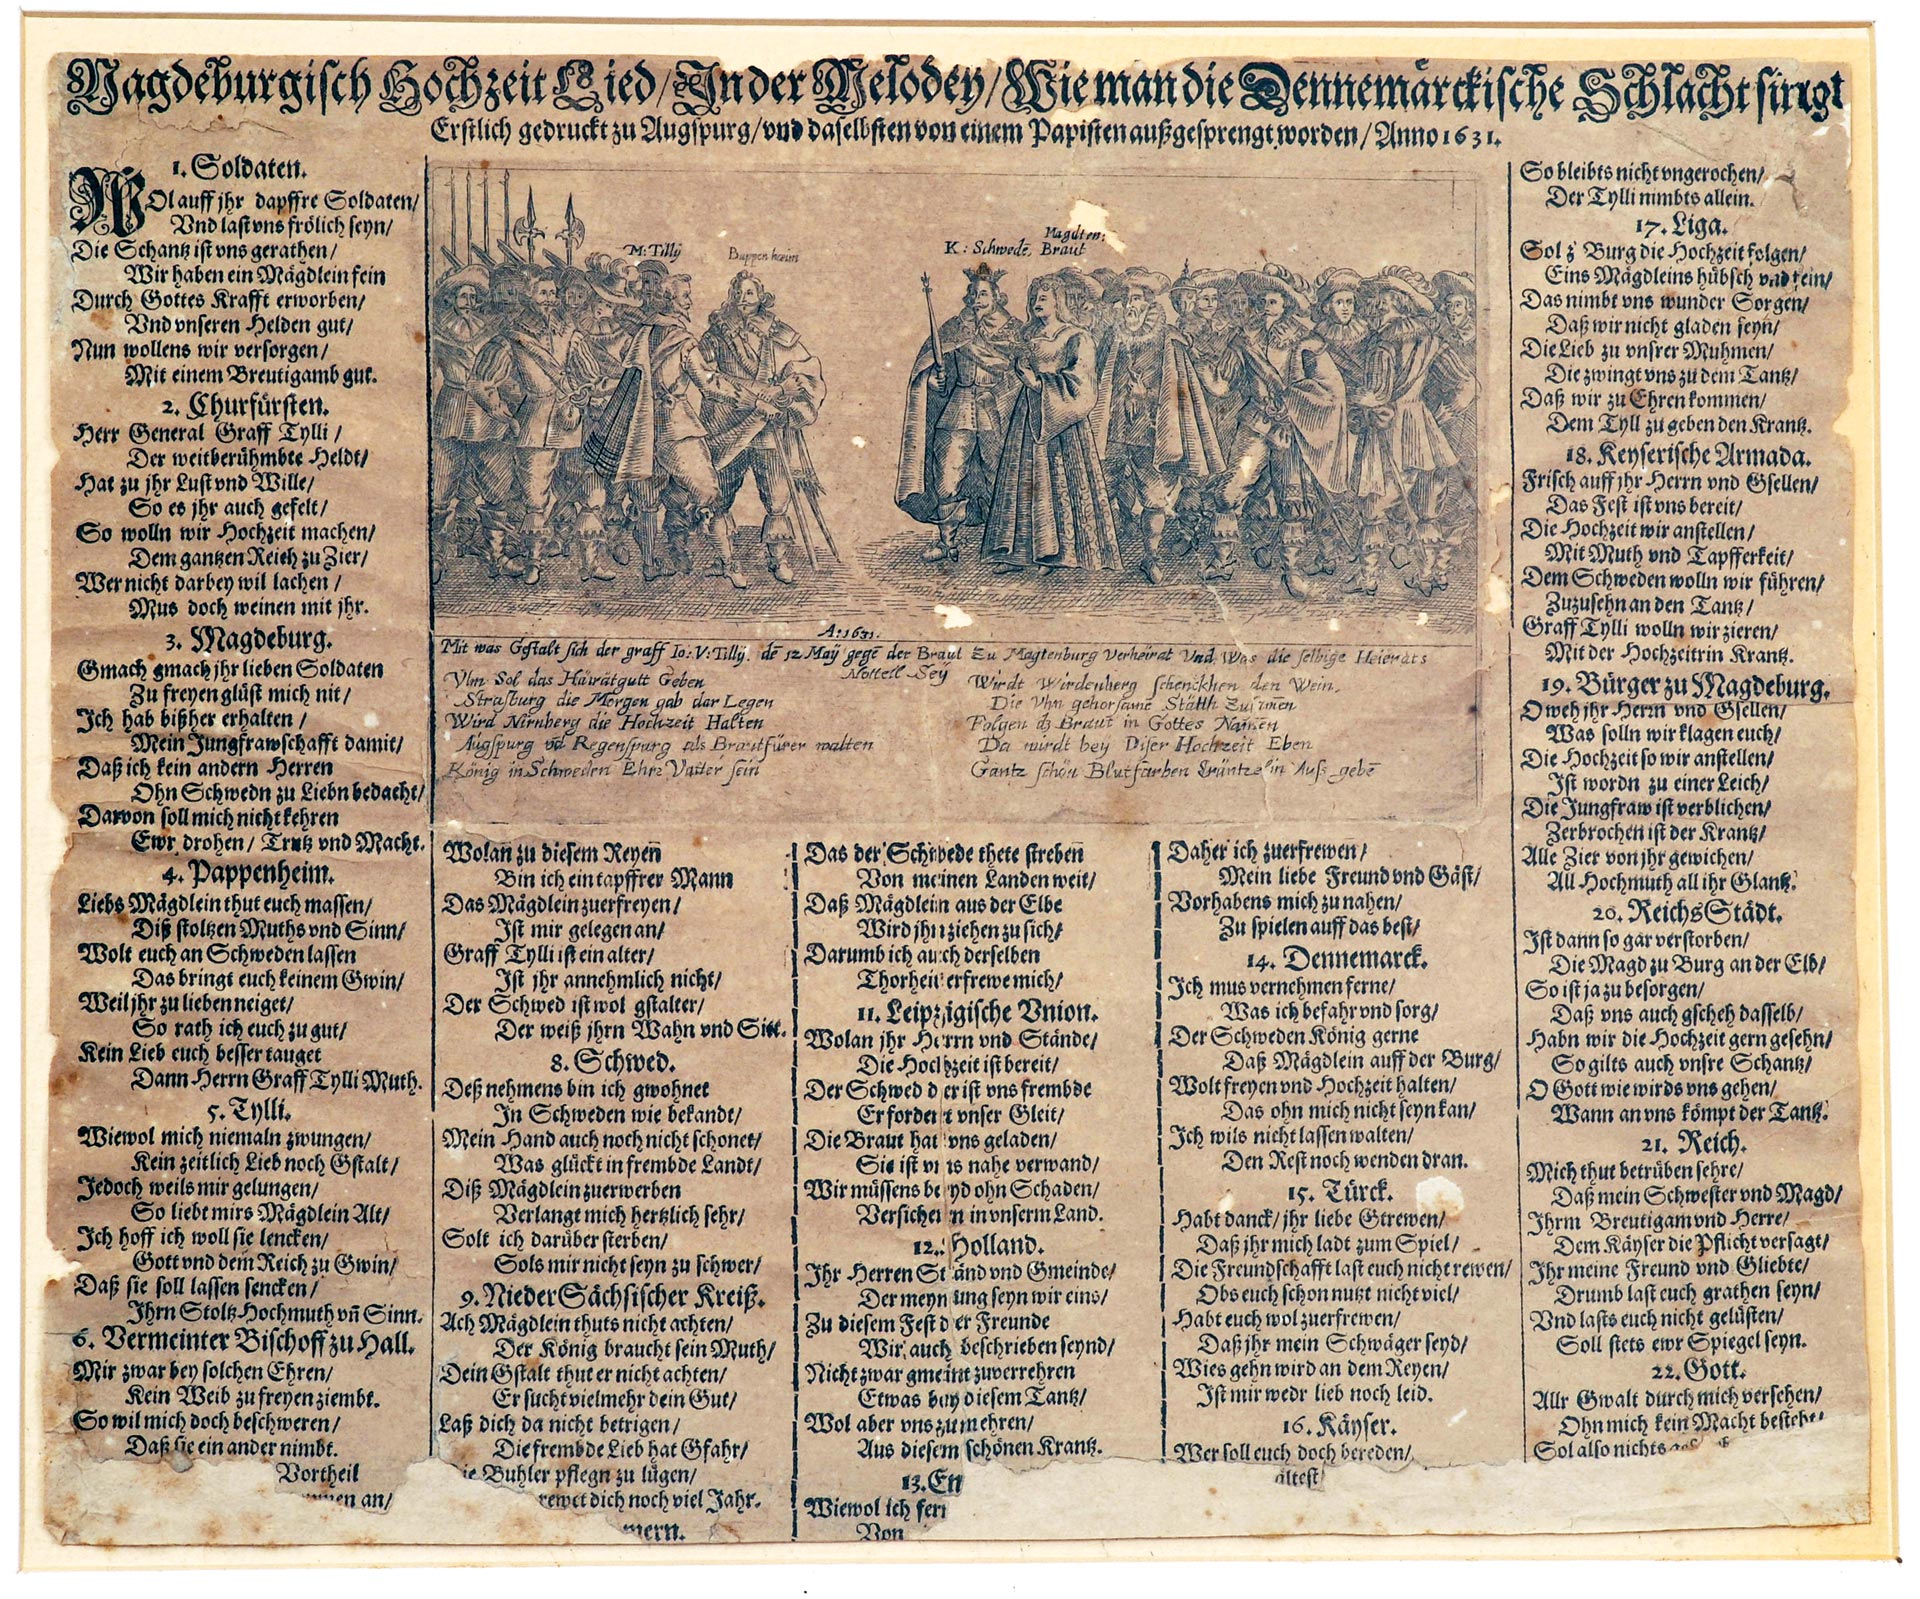 Magdeburgisch Hochzeit Lied/ In der Melodey/ Wie man die Dennemärckische Schlacht singt
Erstlich gedruckt zu Augspurg/ vnd daselbsten von einem Papisten außgesprengt worden/ Anno 1631.
1. Soldaten.
WOl auff jhr dapffre Soldaten/
Vnd last vns frölich seyn/
Die Schantz ist vns gerathen/
Wir haben ein Mägdlein fein
Durch Gottes Krafft erworben/
Vnd vnseren Helden gut/
Nun wollens wir versorgen/
Mit einem Breutigamb gut.
2. Churfürsten.
Herr General Graff Tylli/
Der weitberühmbte Heldt/
Hat zu jhr Lust vnd Wille/
So es jhr auch gefelt/
So wolln wir Hochzeit machen/
Dem gantzen Reich zu Zier/
Wer nicht darbey wil lachen/
Mus doch weinen mit jhr.
3. Magdeburg.
Gmach gmach jhr lieben Soldaten
Zu freyen glüst mich nit/
Ich hab bißher erhalten/
Mein Jungfrawschafft damit/
Daß ich kein andern Herren
Ohn Schwedn zu Liebn bedacht/
Darvon soll mich nicht kehren
Ewr drohen/ Trutz vnd Macht.
4. Pappenheim.
Liebs Mägdlein thut euch massen/
Diß stoltzen Muths vnd Sinn/
Wolt euch an Schweden lassen
Das bringt euch keinem Gwin/
Weil jhr zu lieben neiget/
So rath ich euch zu gut/
Kein Lieb euch besser tauget
Dann Herrn Graff Tylli Muth.
5. Tylli.
Wiewol mich niemaln zwungen/
Kein zeitlich Lieb noch Gstalt/
Jedoch weils mir gelungen/
So liebt mirs Mägdlein Alt/
Ich hoff ich woll sie lencken/
Gott vnd dem Reich zu Gwin/
Daß sie soll lassen sencken/
Ihrn Stoltz Hochmuth vn̄ Sinn.
6. Vermeinter Bischoff zu Hall.
Mir zwar bey solchen Ehren/
Kein Weib zu freyen ziembt.
So wil mich doch beschweren/
Daß sie ein ander nimbt.
Vortheil
an/
M: Tillÿ
Buppenheim
K: Schwedē
Magdten:
Braut
A: 1631.
Mit was Gestalt sich der graff Io: V: Tillÿ. dē 12 Maÿ gegē der Braut Zu Magtenburg verheirat Vnd Was die selbige Heierats
Nottell Seÿ
Vlm Sol das Hairatgutt Geben
Strasburg die Morgen gab dar Legen
Wird Nirnberg die Hochzeit Halten
Augspurg vd̄ Regenspurg als Brautfürer walten
König in Schweden Ehrn Vatter sein
Wirdt Wirdenberg schenckhen den Wein.
Die Vhn gehorsame Stätth Zusamen
Folgen d̄ Braut in Gottes Namen
Da wirdt beÿ Diser Hochzeit Eben
Gantz schön Blutfarben Cräntzelin Auß gebē
Wolan zu diesem Reyen
Bin ich ein tapffrer Mann
Das Mägdlein zuerfreyen/
Ist mir gelegen an/
Graff Tylli ist ein alter/
Ist jhr annehmlich nicht/
Der Schwed ist wol gstalter/
Der weiß jhrn Wahn vnd Sitt.
8. Schwed.
Deß nehmens bin ich gwohnet
In Schweden wie bekandt/
Mein Hand auch noch nicht schonet/
Was glückt in frembde Landt/
Diß Mägdlein zuerwerben
Verlangt mich hertzlich sehr/
Solt ich darüber sterben/
Sols mir nicht seyn zu schwer/
9. NiederSächsischer Kreiß.
Ach Mägdlein thuts nicht achten/
Der König braucht sein Muth/
Dein Gstalt thut er nicht achten/
Er sucht vielmehr dein Gut/
Laß dich da nicht betrigen/
Die frembde Lieb hat Gfahr/
Buhler pflegn zu lügen/
dich noch viel Jahr.
mern.
Das der Schwede thete streben
Von meinen Landen weit/
Daß Mägdlein aus der Elbe
Wird jhn ziehen zu sich/
Darumb ich auch derselben
Thorheit erfrewe mich/
11. Leipzigische Vnion.
Wolan jhr Herrn vnd Stände/
Die Hochzeit ist bereit/
Der Schwed der ist vns frembde
Erfordert vnser Gleit/
Die Braut hat vns geladen/
Sie ist vns nahe verwand/
Wir müssens beyd ohn Schaden/
Versichern in vnserm Land.
12. Holland.
Ihr Herren Ständ vnd Gmeinde/
Der meynung seyn wir eins/
Zu diesem Fest der Freunde
Wir auch beschrieben seynd/
Nicht zwar gmeint zuverrehren
Etwas bey diesem Tantz/
Wol aber vns zumehren/
Aus diesem schönen Krantz.
13. En
Wiewol ich fern
Von
Daher ich zuerfrewen/
Mein liebe Freund vnd Gäst/
Vorhabens mich zu nahen/
Zu spielen auff das best/
14. Dennemarck.
Ich mus vernehmen ferne/
Was ich befahr vnd sorg/
Der Schweden König gerne
Daß Mägdlein auff der Burg/
Wolt freyen vnd Hochzeit halten/
Das ohn mich nicht seyn kan/
Ich wils nicht lassen walten/
Den Rest noch wenden dran.
15. Türck.
Habt danck/ jhr liebe Gtrewen/
Daß jhr mich ladt zum Spiel/
Die Freundschafft last euch nicht rewen/
Obs euch schon nutzt nicht viel/
Habt euch wol zuerfrewen/
Daß jhr mein Schwäger seyd/
Wies gehn wird an dem Reyen/
Ist mir wedr lieb noch leid.
16. Käyser.
Wer soll euch doch bereden/
ältest/
So bleibts nicht vngerochen/
Der Tylli nimbts allein.
17. Liga.
Sol z' Burg die Hochzeit folgen/
Eins Mägdleins hübsch vnd fein/
Das nimbt vns wunder Sorgen/
Daß wir nicht gladen seyn/
Die Lieb zu vnsrer Muhmen/
Die zwingt vns zu dem Tantz/
Daß wir zu Ehren kommen/
Dem Tyll zu geben den Krantz.
18. Keyserische Armada.
Frisch auff jhr Herrn vnd Gsellen/
Das Fest ist vns bereit/
Die Hochzeit wir anstellen/
Mit Muth vnd Tapfferkeit/
Dem Schweden wolln wir führen/
Zuzusehn an den Tantz/
Graff Tylli wolln wir zieren/
Mit der Hochzeitrin Krantz.
19. Bürger zu Magdeburg.
O weh jhr Herrn vnd Gsellen/
Was solln wir klagen euch/
Die Hochzeit so wir anstellen/
Ist wordn zu einer Leich/
Die Jungfraw ist verblichen/
Zerbrochen ist der Krantz/
Alle Zier von jhr gewichen/
All Hochmuth all ihr Glantz.
20. ReichsStädt.
Ist dann so gar verstorben/
Die Magd zu Burg an der Elb/
So ist ja zu besorgen/
Daß vns auch gscheh dasselb/
Habn wir die Hochzeit gern gesehn/
So gilts auch vnsre Schantz/
O Gott wie wirds vns gehen/
Wann an vns kömpt der Tantz.
21. Reich.
Mich thut betrüben sehre/
Daß mein Schwester vnd Magd/
Ihrm Breutigam vnd Herre/
Dem Käyser die Pflicht versagt/
Ihr meine Freund vnd Gliebte/
Drumb last euch grathen seyn/
Vnd lasts euch nicht gelüsten/
Soll stets ewr Spiegel seyn.
22. Gott.
Allr Gwalt durch mich versehen/
Ohn mich kein Macht besteht/
Sol also nichts